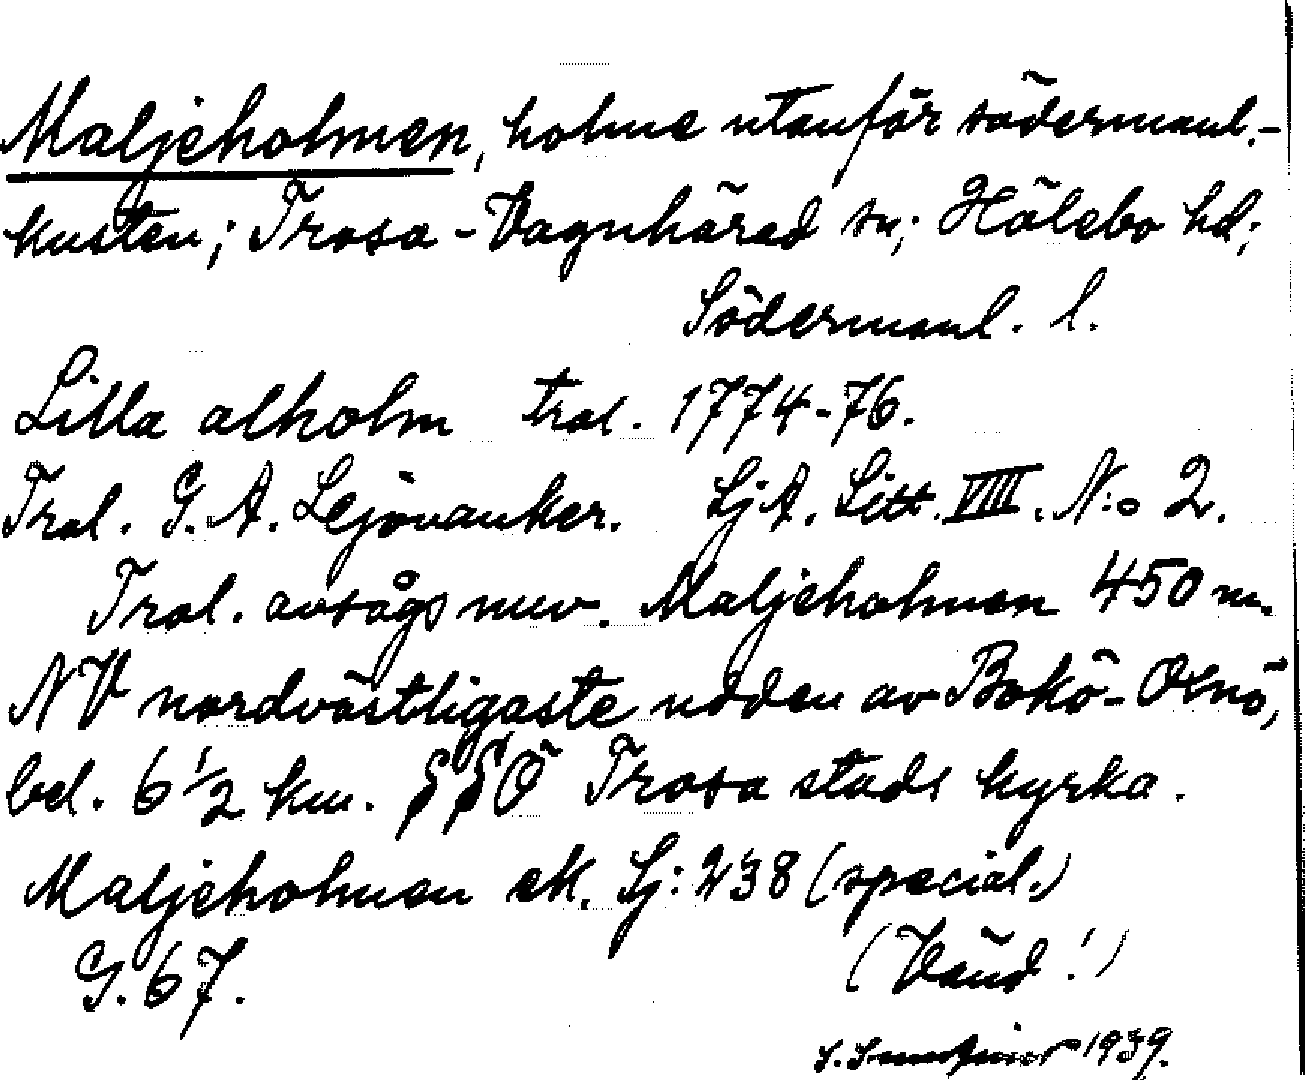 Maljeholmen, holme utanför södermanl.-
kusten; Trosa-Vagnhärad sn; Hölebo hd;
Södermanl. l.
Lilla alholm trol. 1774-76.
Trol. G. A. Lejonanker. SjA. Litt. VIIII. N:o 2.
Trol. avsågs nuv. Maljeholmen 450 m.
NV nordvästligaste udden av Bokö-Oxnö,
bel. 6 1/2 km. SSÖ Trosa stads kyrka.
Maljeholmen ek. Sj: 238 (special.)
G. 67.
(Vänd!)
1939.